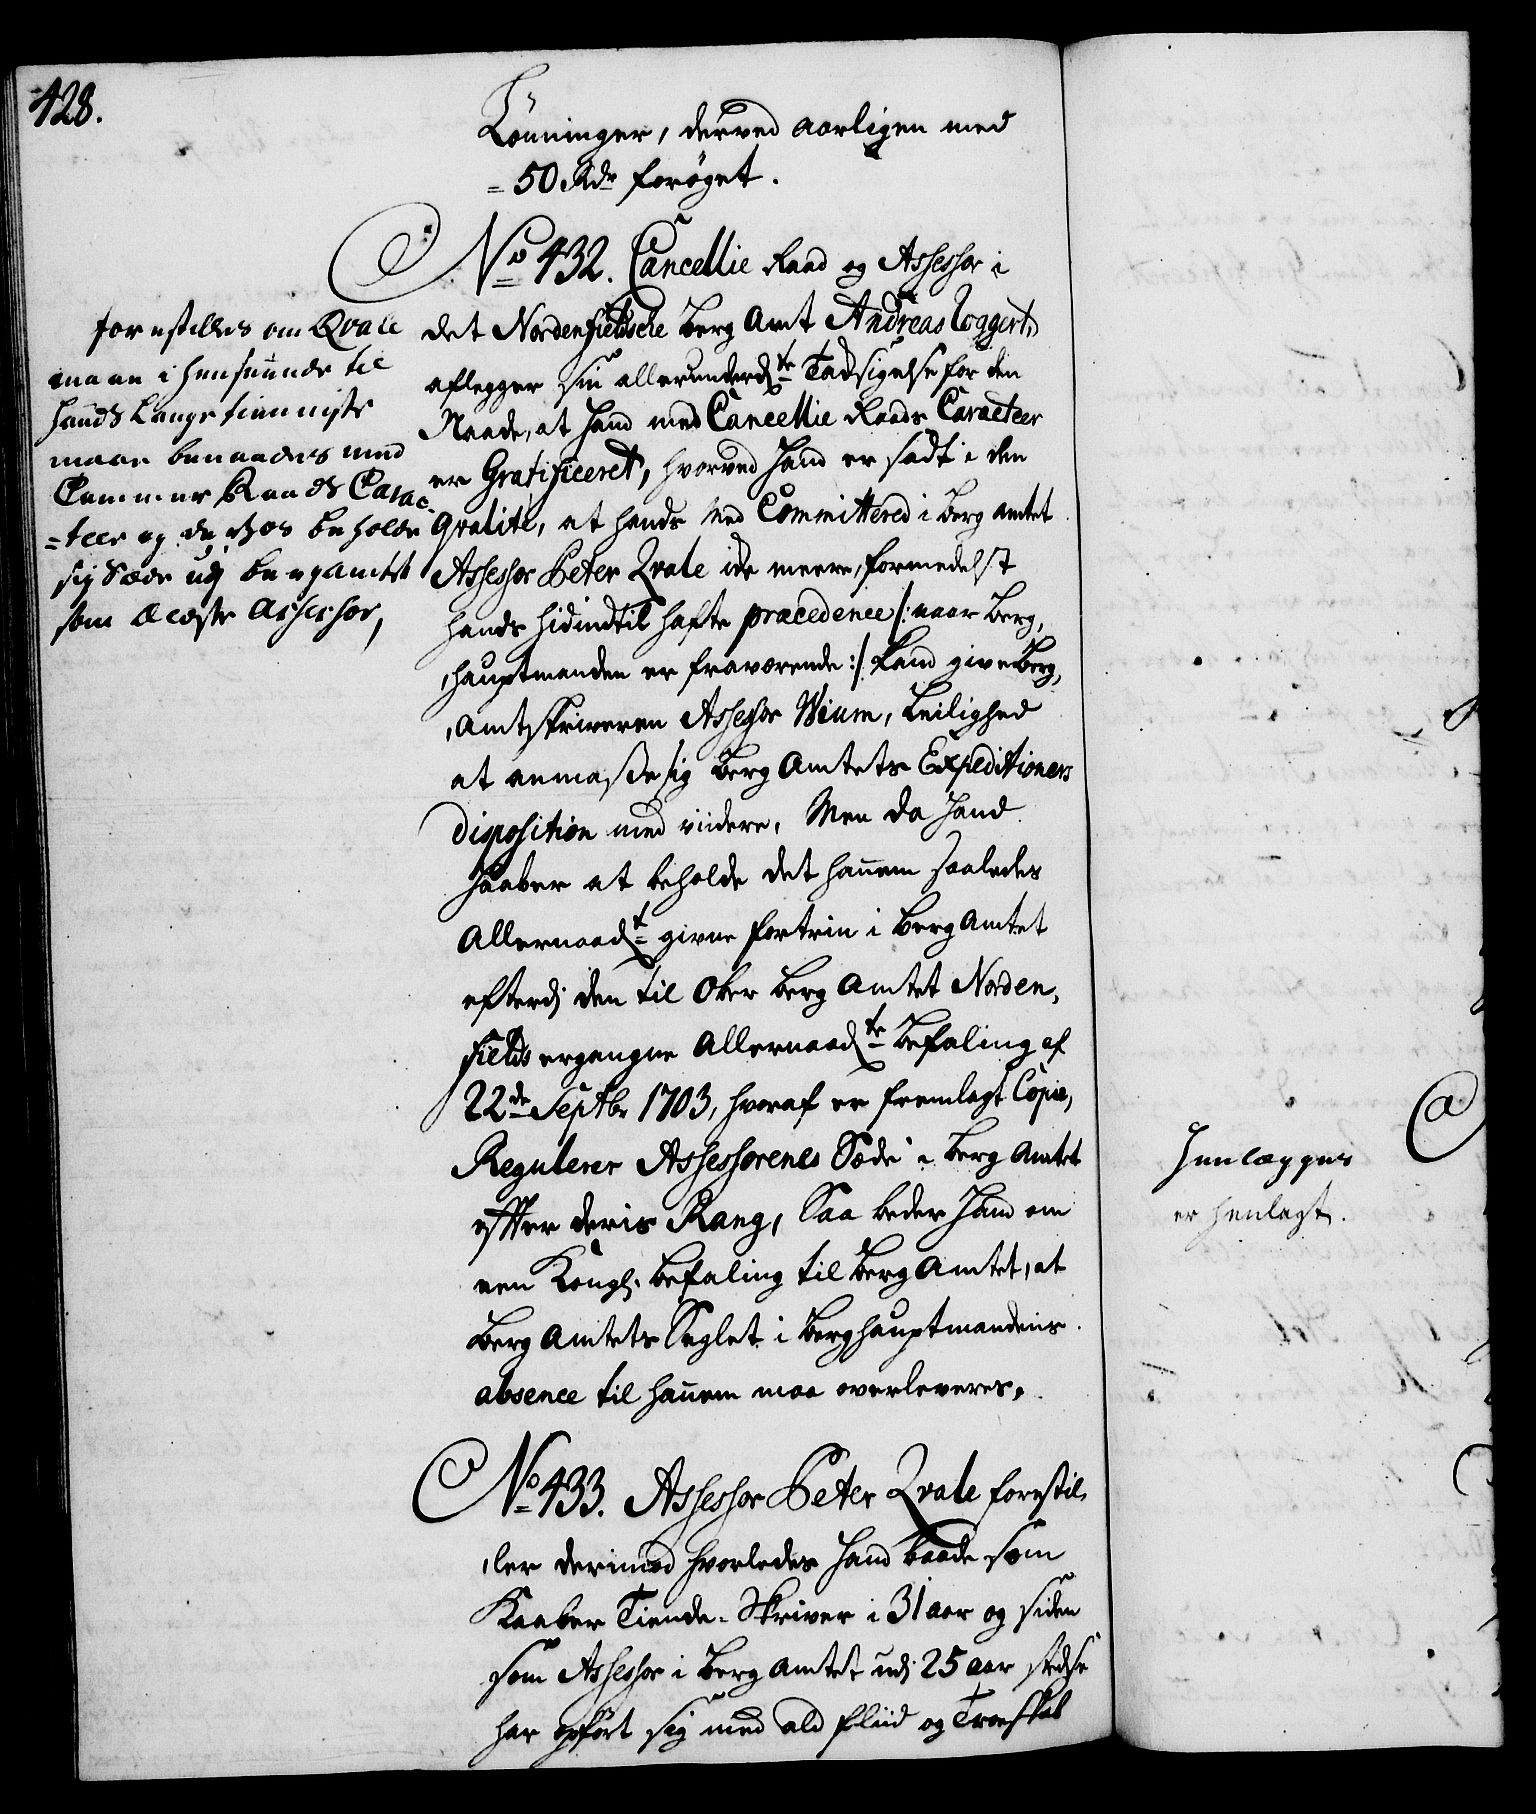 428.
Lønninger, derved aarligen med
= 50 Rdr forøget.
No 432. Cancellie Raad og Assessor i
det Nordenfieldsche Berg Amt Andreas
aflegger sin allerunderdte Tacksigelse for den
Naade, at hand med Cancellie Raads Caracteer
er Gratificeret, hvorved hand er sadt i den
qvalité, at hands Med Committered i Berg Amtet
Assessor Peter Qvale icke meere, formedelst
hands hidindtil hafte præcedence /: naar Berg,
,hauptmanden er fraværende :/ kand give Berg,
,Amtskriveren Assessor Wium, Leilighed
at anmasse sig Berg Amtets Expeditioners
Disposition med videre, Men da hand
haaber at beholde det hannem saaledes
Allernaadt givne fortrin i Berg Amtet
efterdj den til Ober Berg Amtet Norden,
fields ergangne Allernaadte Befaling af
22de Septbr 1703, hvoraf er fremlagt Copie,
Regulerer Assessorenes Sæde i Berg Amtet
efter deris Rang, Saa beder hand om
een Kongl. Befaling til Berg Amtet, at
Berg Amtets Seglet i Berghauptmandens
absence til hannem maa overleveres.
No 433. Assessor Peter Qvale forestil,
,ler derimod hvorledes hand baade som
Kaaber Tiende-Skriver i 31 aar og siden
som Assessor i Berg Amtet udj 25 aar stedse
har opført sig med ald fliid og Troeskab
forestilles om Qvale
maae i henseende til
hands lange tieeniste
maae benaades med
Cammer Raads Carac-
=teer og derhos beholde
sig Sæde udj Bergamtet
som ældste Assessor,
Henlægges
er henlagt.